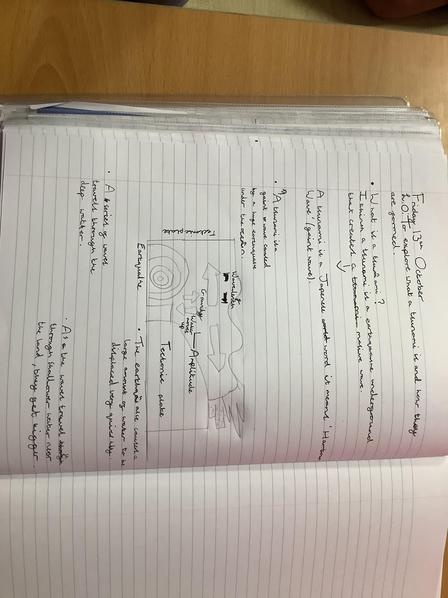 Friday 13th October
L.O. To explore what a tsunami is and how they
are formed.
• What is a tsunami?
I think a tsunami is a earthquake underground
that creates a massive wave.
A tsunami is a Japanese word it means 'Harbour
Wave' (giant wave).
• A tsunami is a
giant wave caused
by a huge earthquake
under the ocean.
wavelength
Gravity
Amplitude
Tectonic plate
Tectonic plate
Earquake
• The earthquake causes a
large amount of water to be
displaced very quickly.
• A series of waves
travels through the
deep water.
• As the waves travel
through shallower water near
the land, they get bigger.